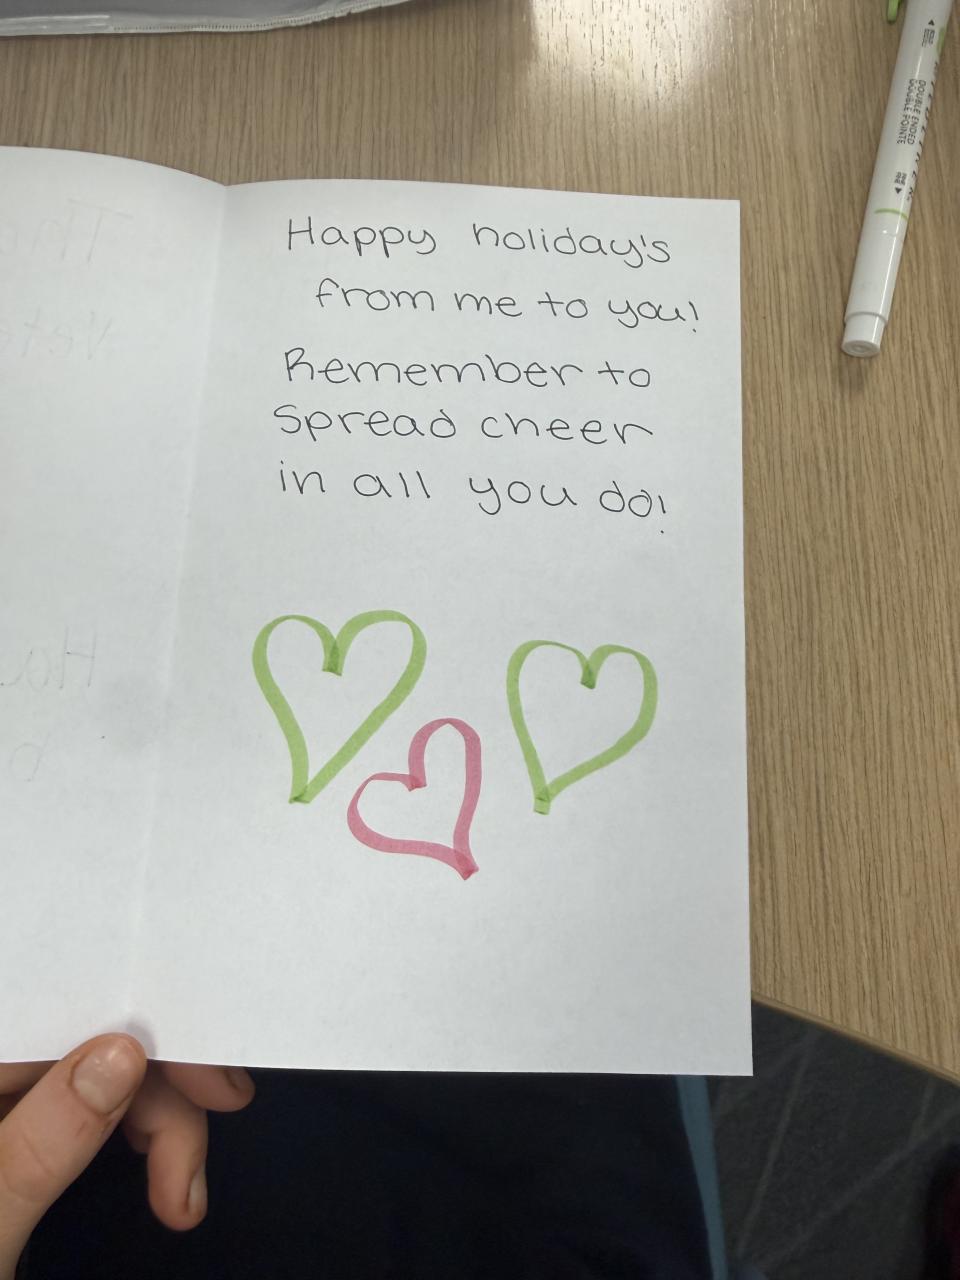 Happy holiday's
from me to you!
Remember to
spread cheer
in all you do!
DOUBLE ENDED
DOUBLE POINTE